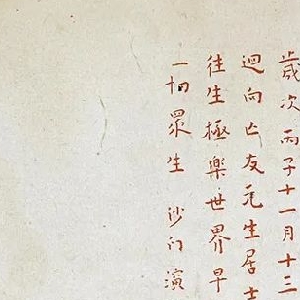 歲次丙子十一月十三
迴向亡友元生居士
往生極樂世界早
一切眾生沙門演